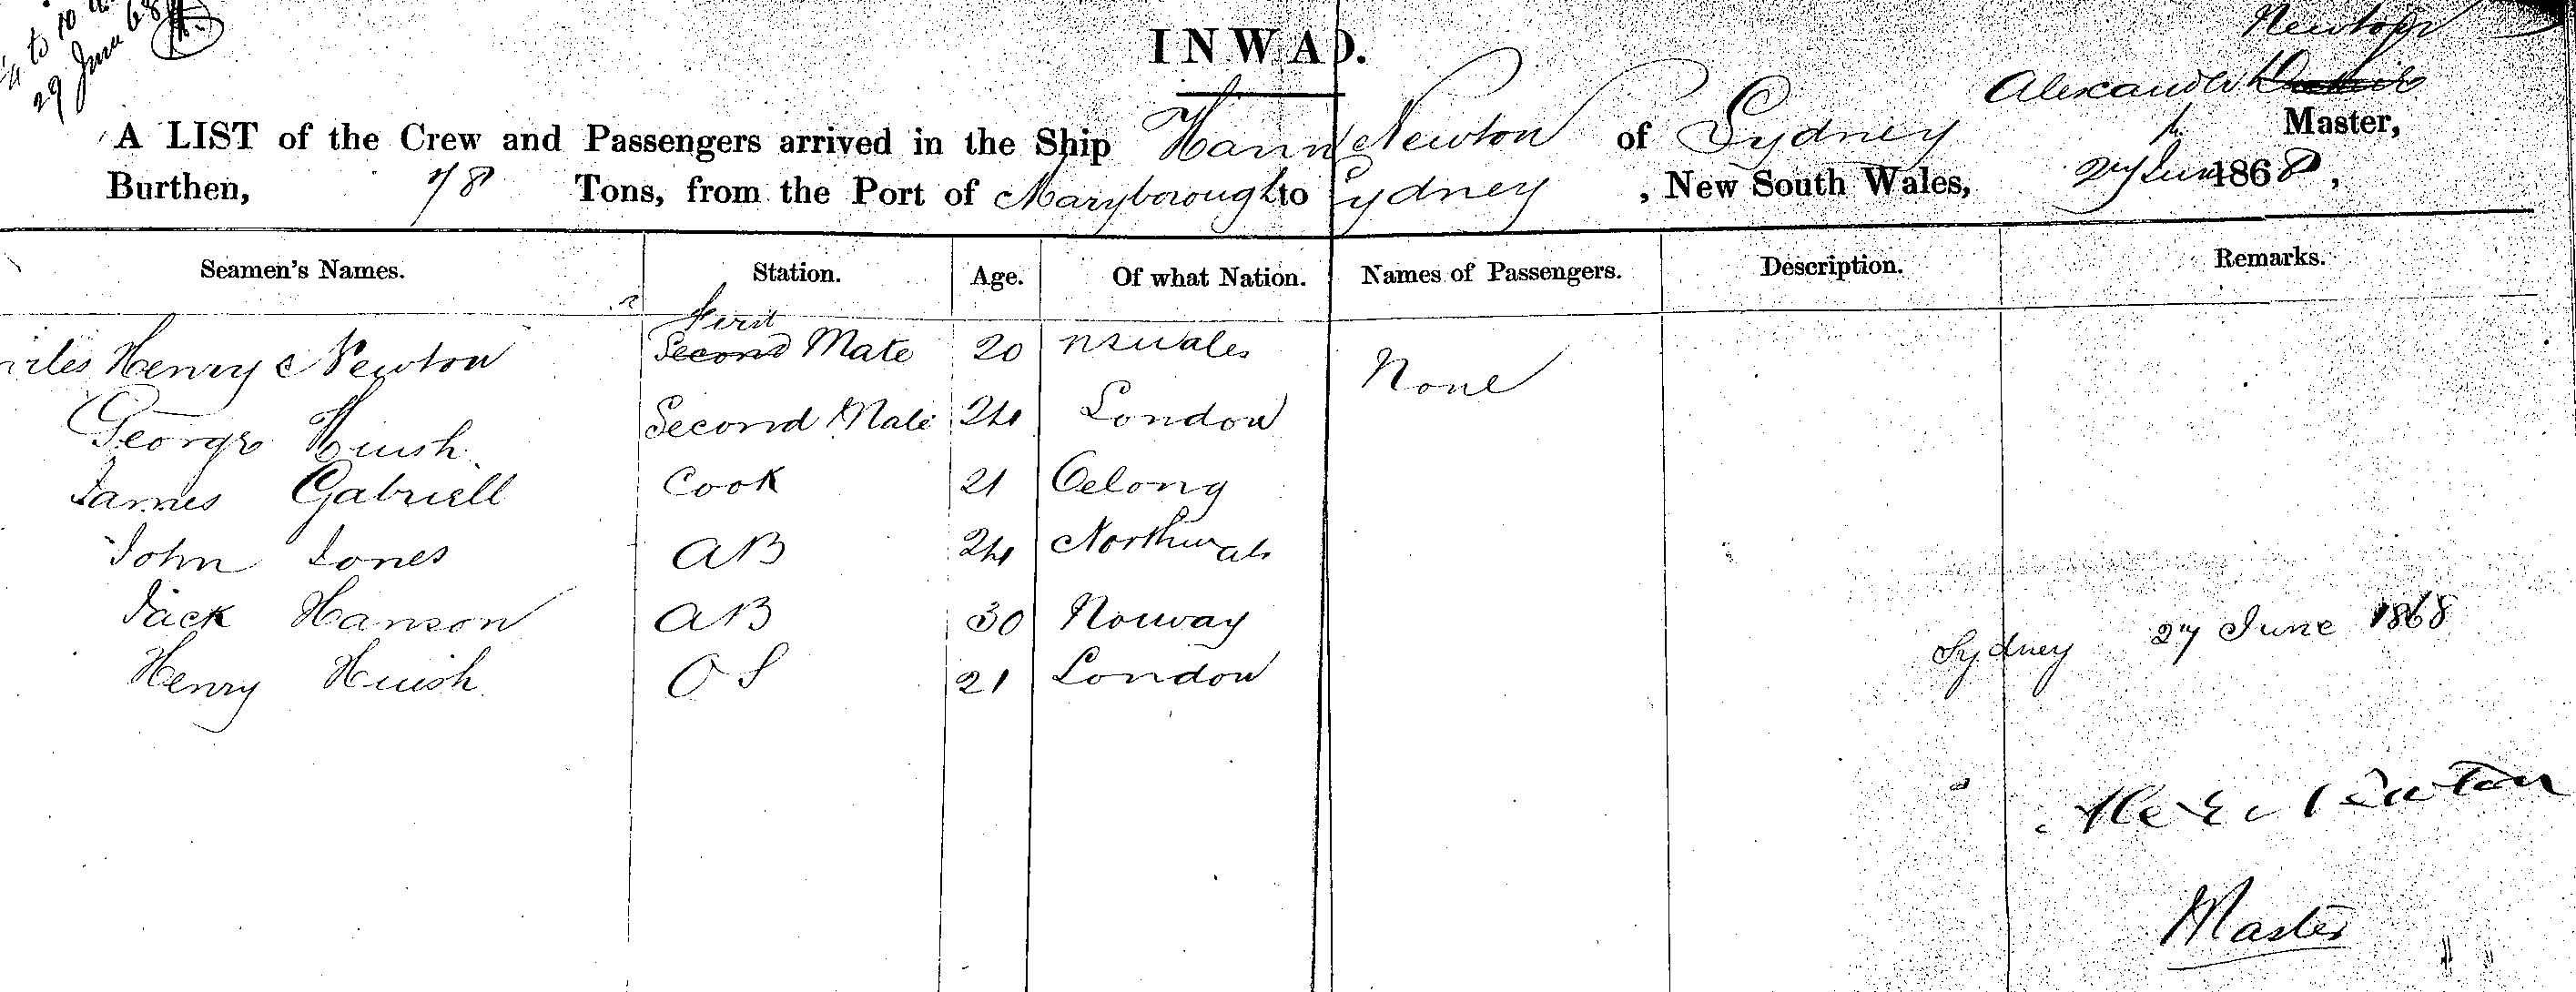 ¼ to 10 a
29 June 68
INWAD.
Newton
Alexander
A LIST of the Crew and Passengers arrived in the Ship Hann Newton of Sydney Master,
Burthen, 78 Tons, from the Port of Maryborough to Sydney, New South Wales, 27 June 1868,
Seamen's Names. Station. Age. Of what Nation. Names of Passengers. Description. Remarks.
First
rles Henry Newton Second Mate 20 nswales None
George Huish Second Mate 24 London
James Gabriell Cook 21 Gelong
John Jones AB 24 Northwals
Jack Hanson AB 30 Norway
Henry Huish OS 21 London
Sydney 27 June 1868
Alexr Newton
Master